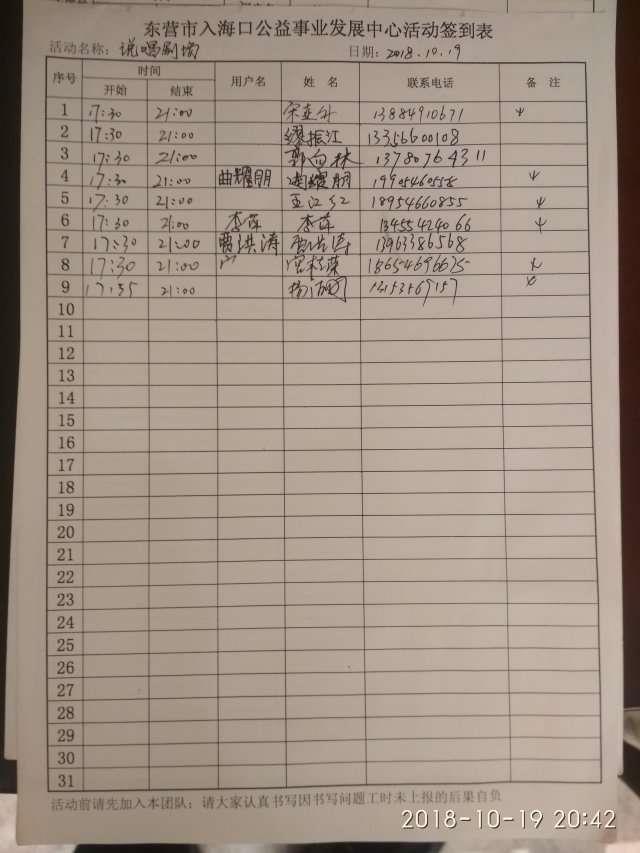 东营市入海口公益事业发展中心活动签到表
活动名称：说唱剧场 日期：2018.10.19
序号 时间 用户名 姓名 联系电话 备注
开始 结束
1 17:30 21:00 13884910671
2 17:30 21:00 缪振江 13356600108
3 17:30 21:00 郭向林 13780764311
4 17:30 21:00 曲耀朋 曲耀朋 19905460558
5 17:30 21:00 王江红 18954660855
6 17:30 21:00 李萍 李萍 13455424066
7 17:30 21:00 曹洪涛 曹洪涛 13963386568
8 17:30 21:00 18654696675
9 17:35 21:00
10
11
12
13
14
15
16
17
18
19
20
21
22
23
24
25
26
27
28
29
30
31
活动前请先加入本团队；请大家认真书写因书写问题工时未上报的后果自负
2018-10-19 20:42